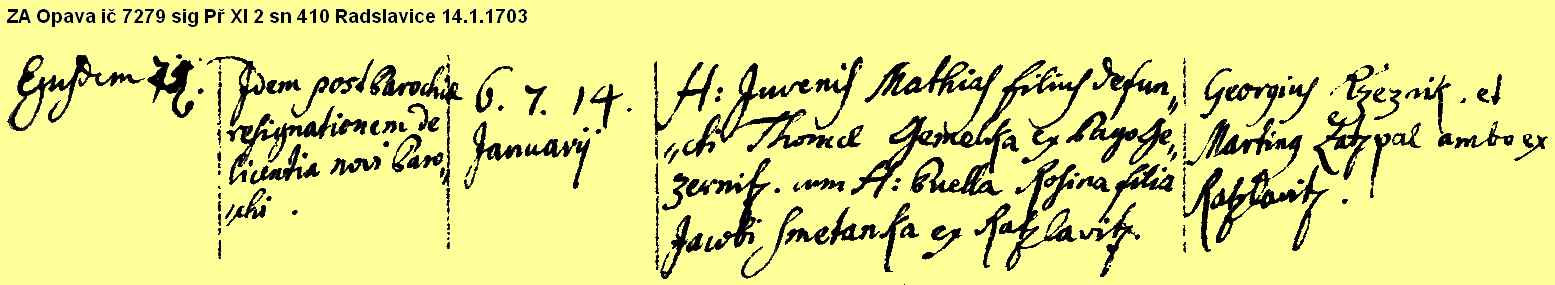 ZA Opava ič 7279 sig Př XI 2 sn 410 Radslavice 14.1.1703
Ejusdem
Idem post Parochiæ
resignationem de
licentia novi Paro„
„chi .
6. 7. 14.
Januarij
H: Juvenis Mathias filius defun„
„cti Thomæ Gemelka ex Pago Ge„
zernitz. cum H: Puella Rosina filia
Jacobi Smetanka ex Ratzlavitz.
Georgius Rzeznik. et
Martinus Zatzpal ambo ex
Ratzlavitz .